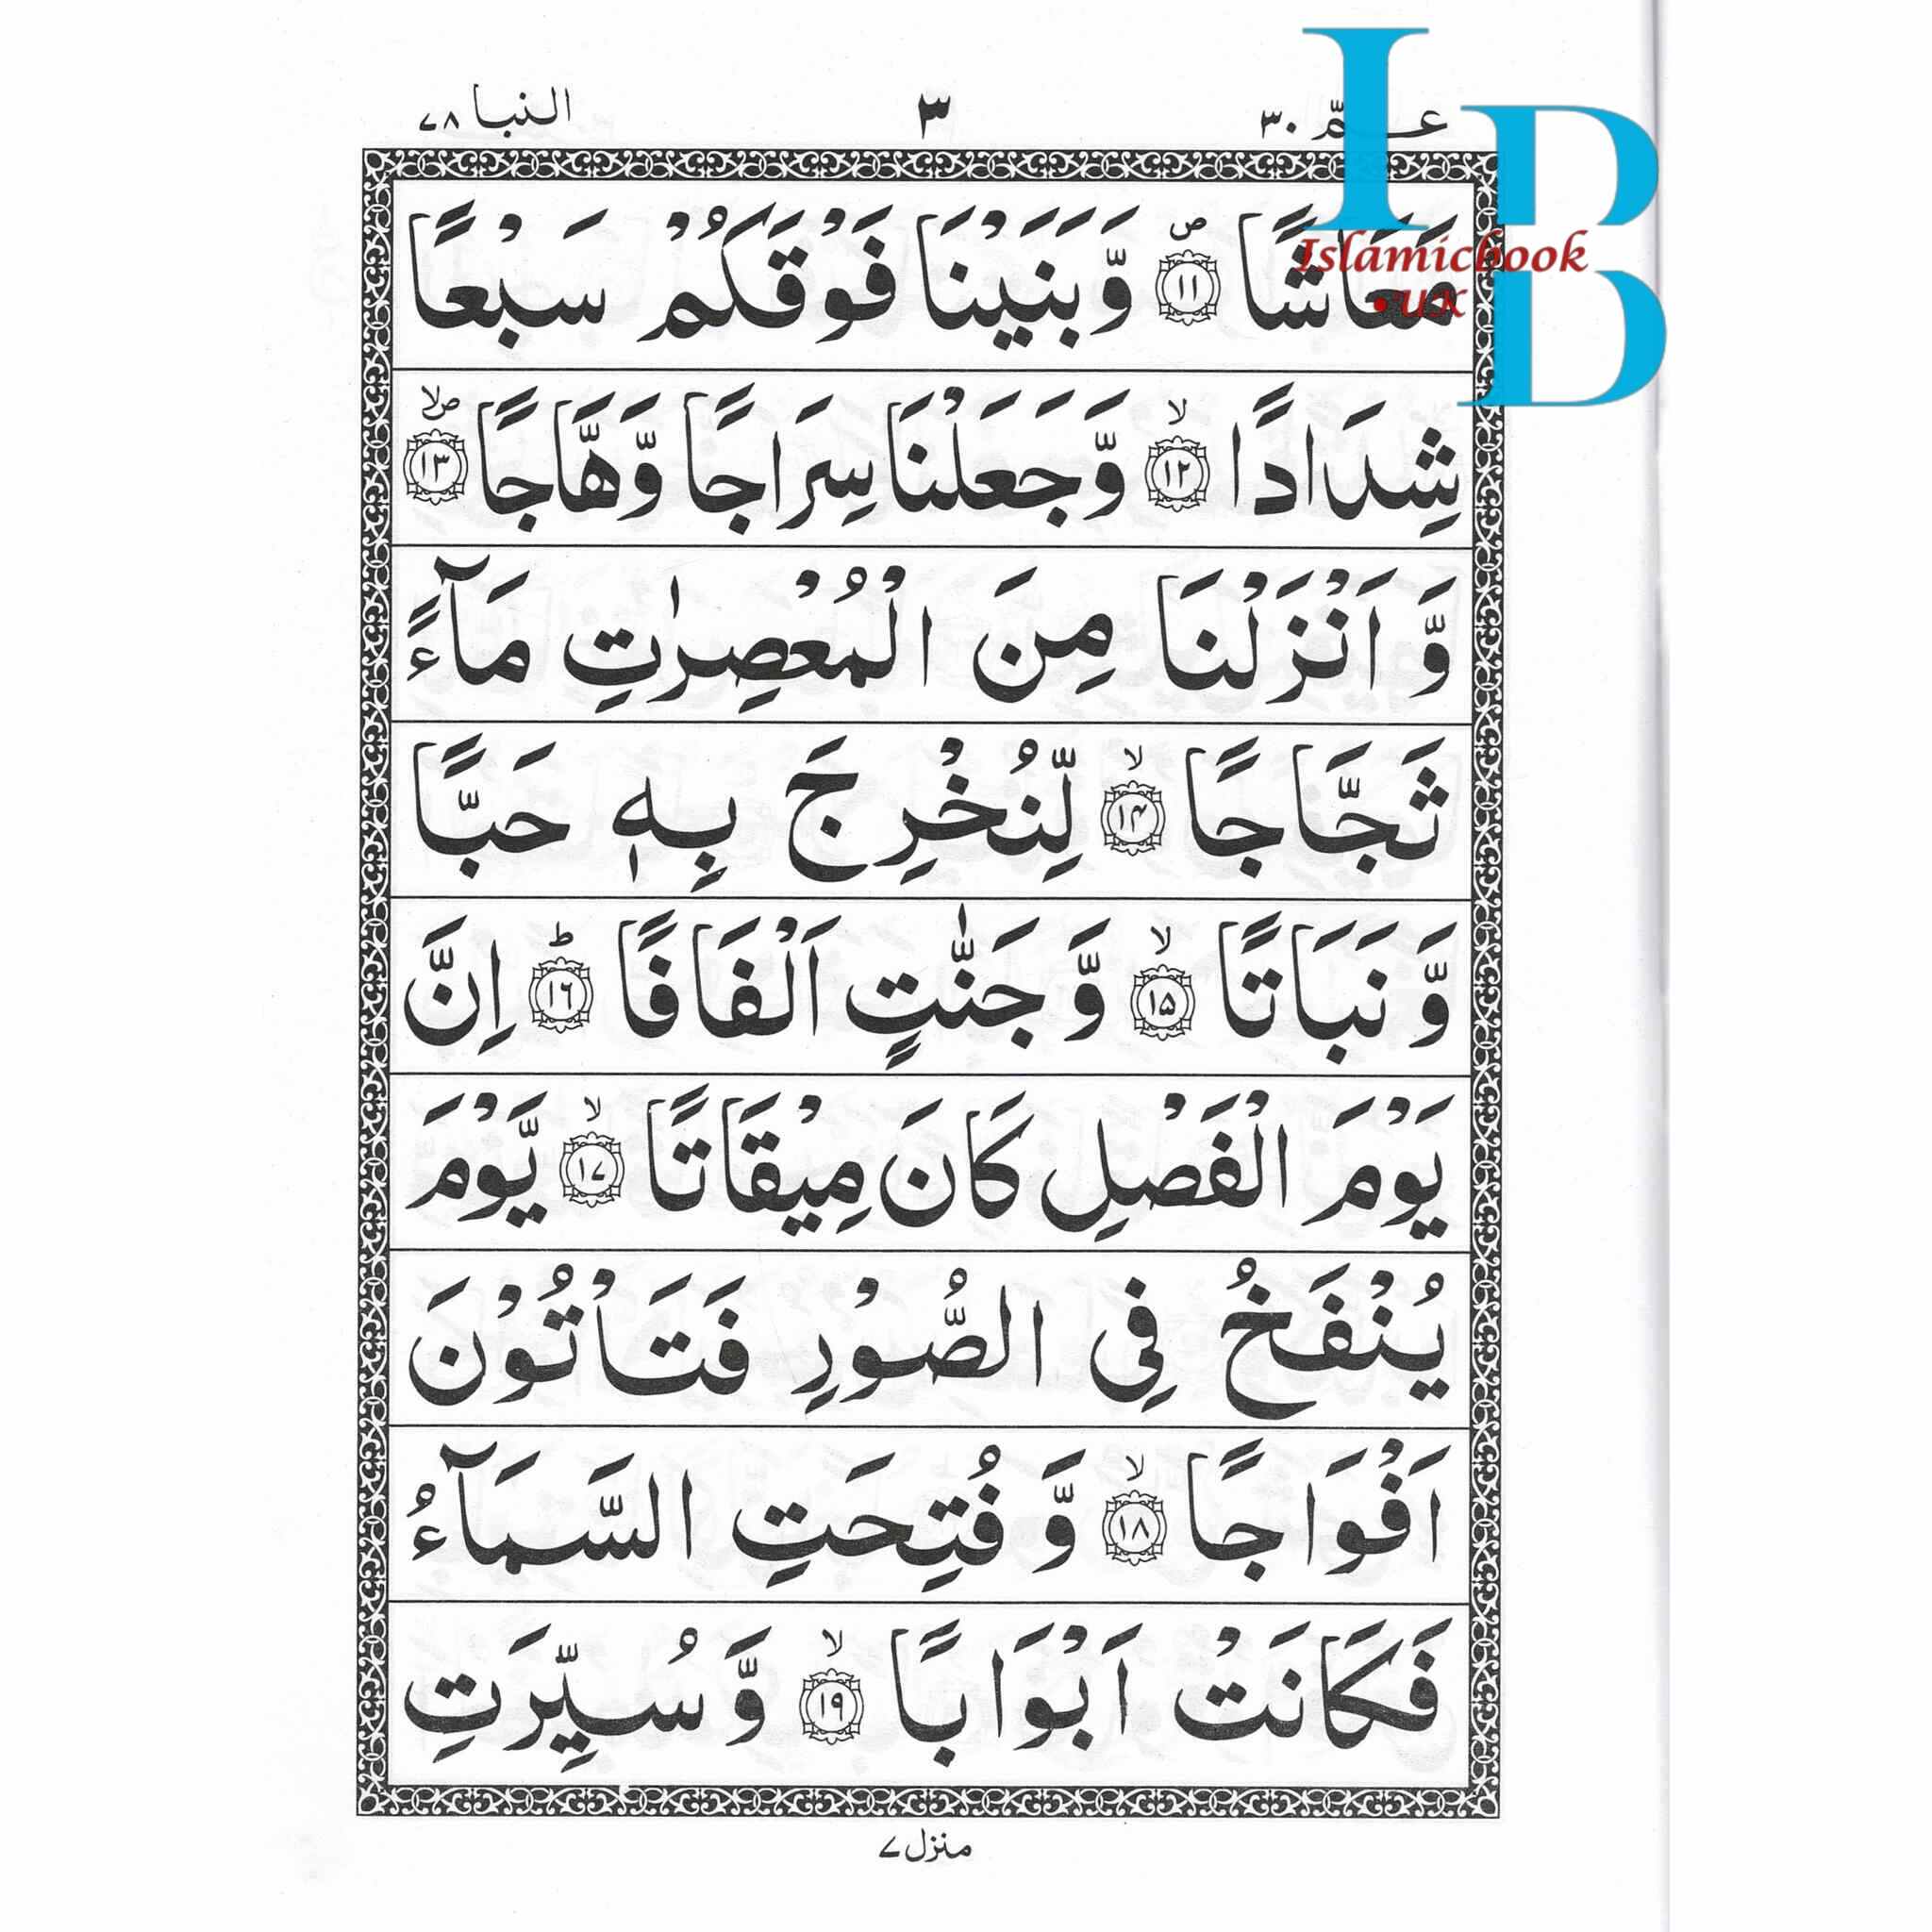 عــمّ ٣٠
٣
النبا ٧٨
IB
D
Islamicbook
.UK
مَعَاشًا ۪ۙ‏﴿۱۱﴾ ص وَّبَنَيْنَا فَوْقَكُمْ سَبْعًا
شِدَادًا ﴿۱۲﴾ۙ وَّجَعَلْنَا سِرَاجًا وَّهَّاجًا ﴿۱۳﴾ صلا
وَّ اَنْزَلْنَا مِنَ الْمُعْصِرٰتِ مَآءً
ثَجَّاجًا ﴿۱۴﴾ۙ لِّنُخْرِجَ بِهٖ حَبًّا
وَّ نَبَاتًا ﴿۱۵﴾ۙ وَّ جَنّٰتٍ اَلْفَافًا ﴿۱۶﴾ؕ اِنَّ
يَوْمَ الْفَصْلِ كَانَ مِيْقَاتًا ﴿۱۷﴾ۙ يَّوْمَ
يُنْفَخُ فِي الصُّوْرِ فَتَاْتُوْنَ
اَفْوَاجًا ﴿۱۸﴾ۙ وَّ فُتِحَتِ السَّمَآءُ
فَكَانَتْ اَبْوَابًا ﴿۱۹﴾ۙ وَّ سُيِّرَتِ
منزل ٧